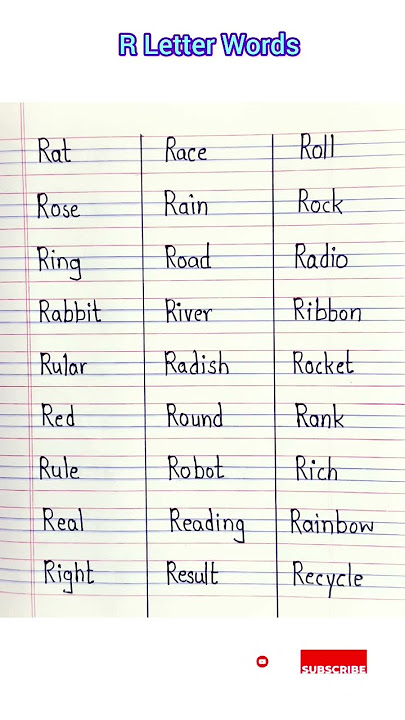 R Letter Words
Rat Race Roll
Rose Rain Rock
Ring Road Radio
Rabbit River Ribbon
Rular Radish Rocket
Red Round Rank
Rule Robot Rich
Real Reading Rainbow
Right Result Recycle
SUBSCRIBE